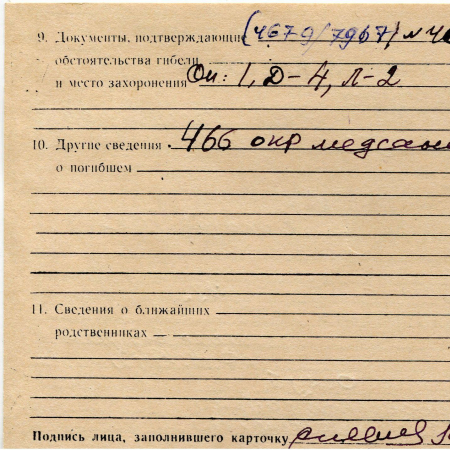 9. Документы, подтверждающие (4679/7967) № 40
обстоятельства гибели
и место захоронения Оп: 1, Д-4, Л-2
10. Другие сведения 466 окр медсан
о погибшем
11. Сведения о ближайших
родственниках
Подпись лица, заполнившего карточку